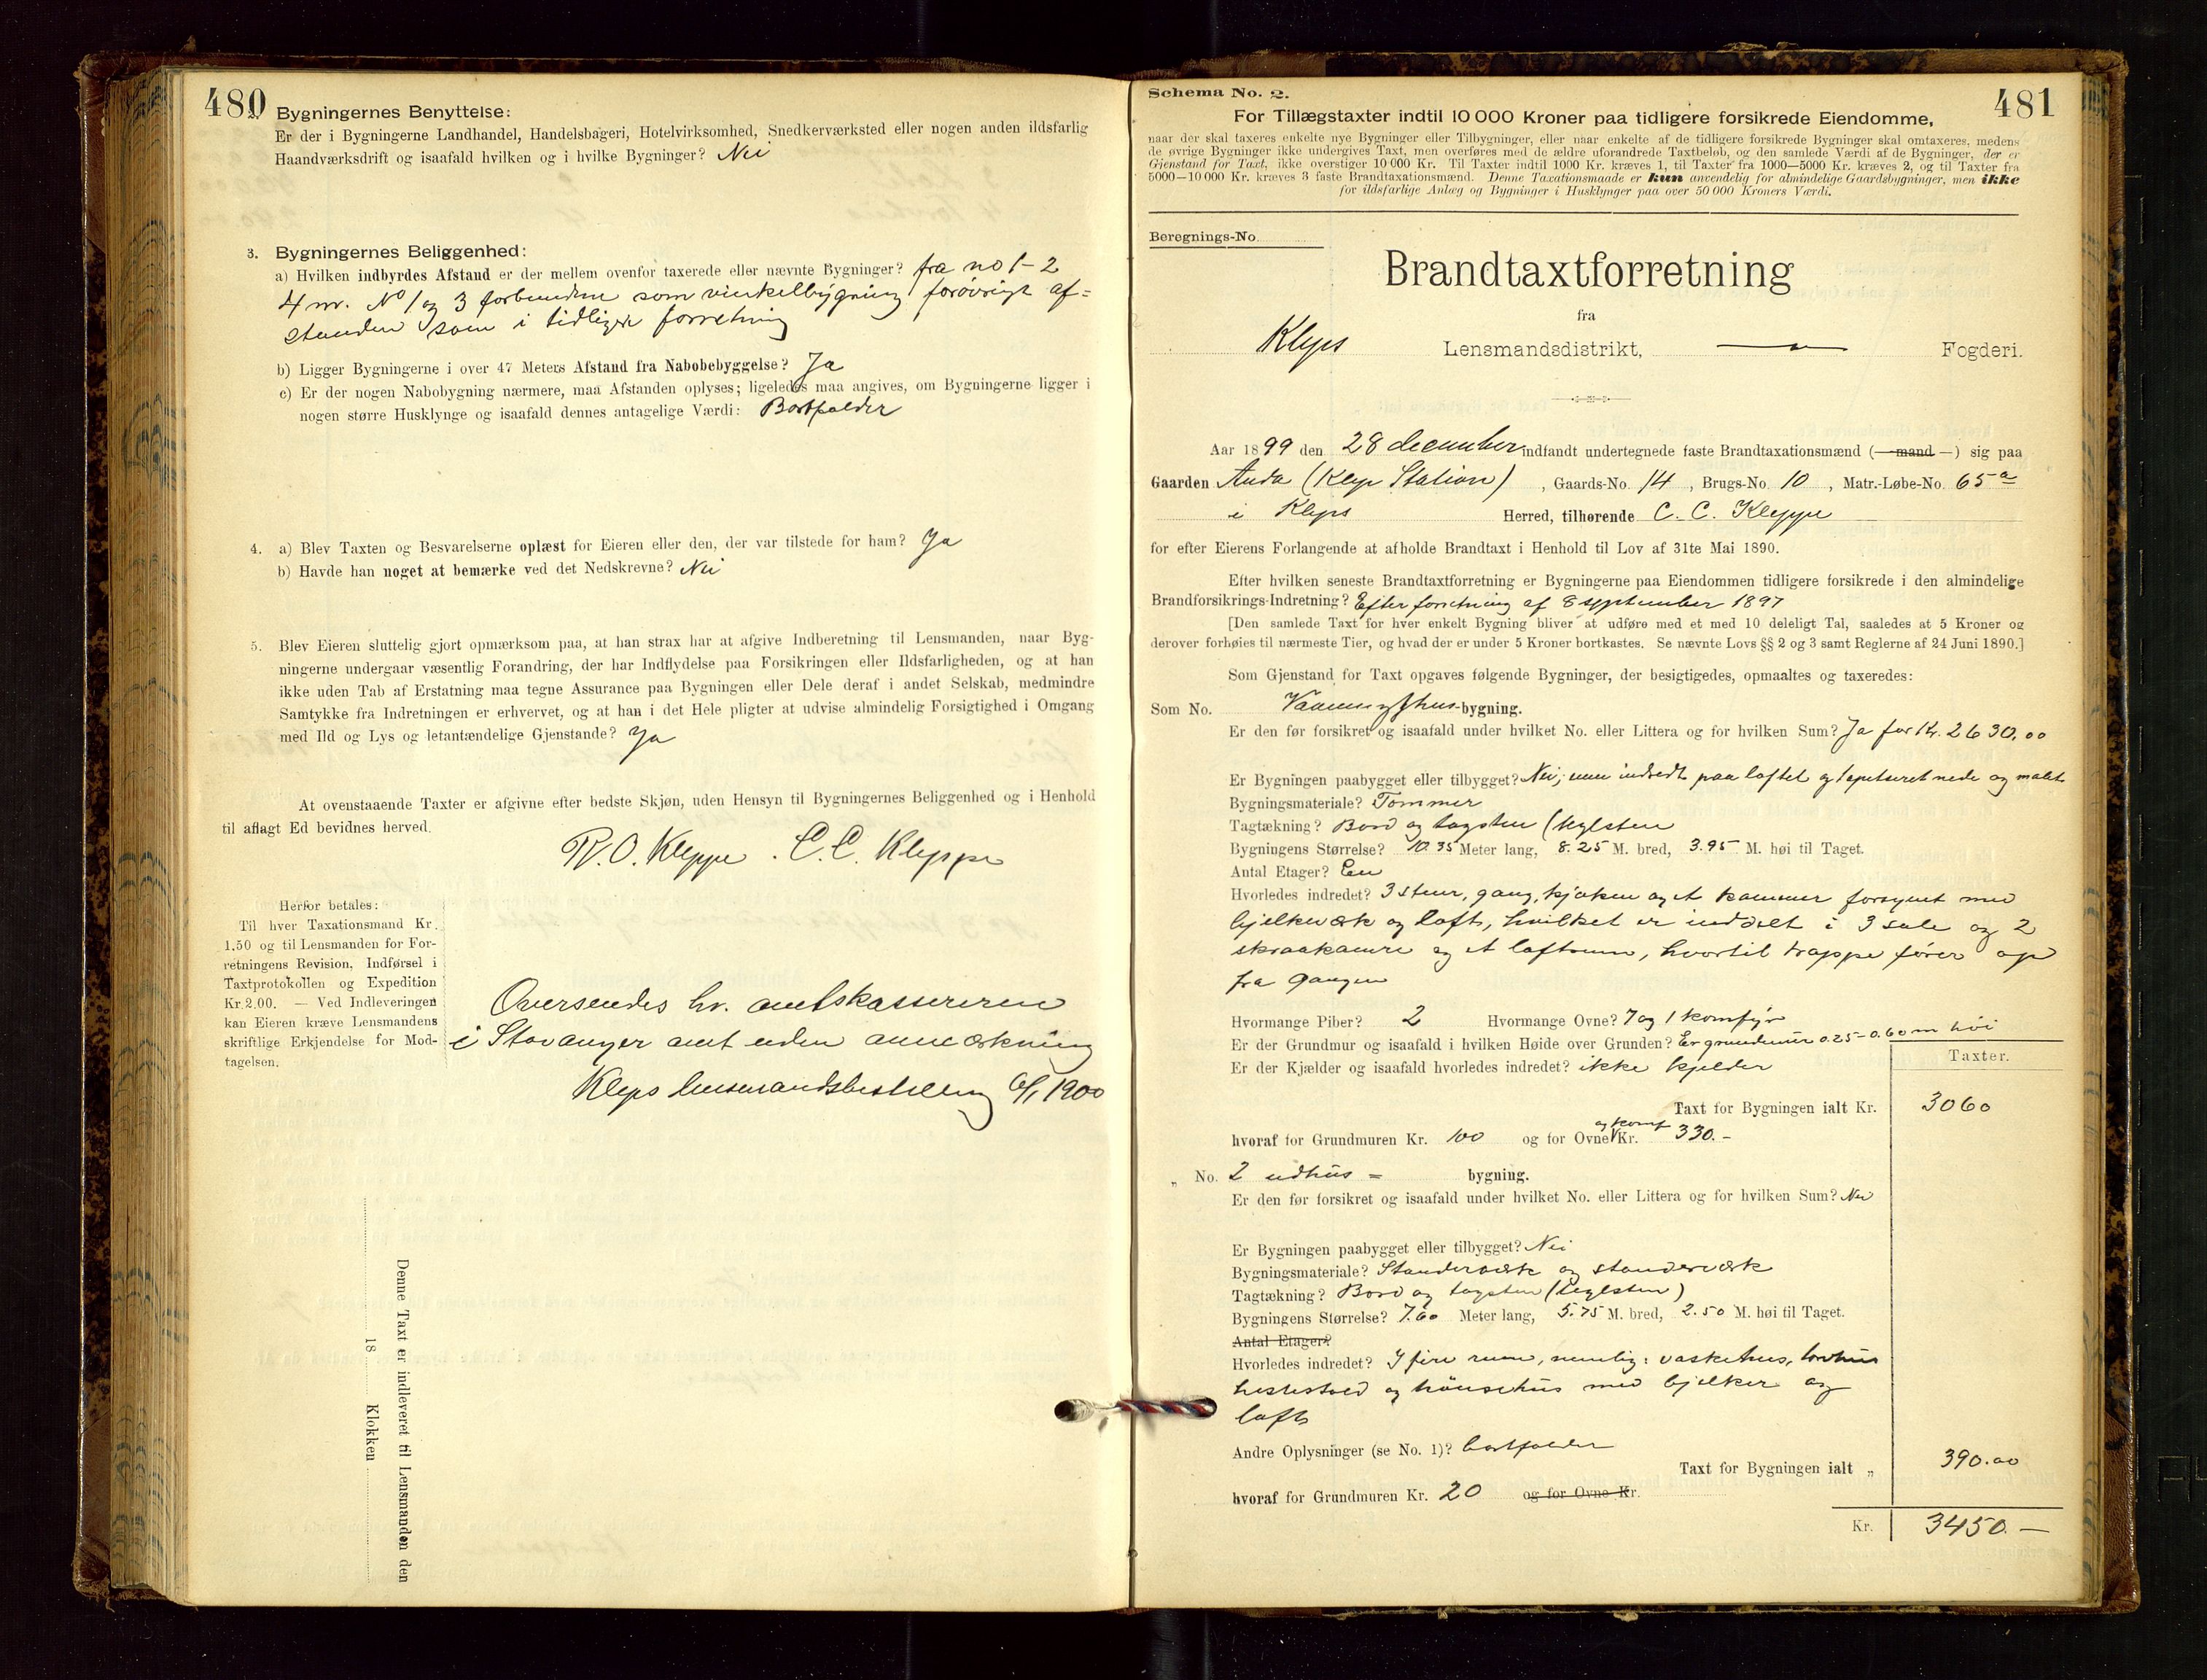 480
2. Bygningernes Benyttelse:
Er der i Bygningerne Landhandel, Handelsbageri, Hotelvirksomhed, Snedkerværksted eller nogen anden ildsfarlig
Haandværksdrift og isaafald hvilken og i hvilke Bygninger? Nei
3. Bygningernes Beliggenhed:
a) Hvilken indbyrdes Afstand er der mellem ovenfor taxerede eller nævnte Bygninger? fra no 1-2
4 m. No 1 og 3 forbundne som vinkelbygning forøvrigt af=
standen som i tidligere forretning
b) Ligger Bygningerne i over 47 Meters Afstand fra Nabobebyggelse? Ja
c) Er der nogen Nabobygning nærmere, maa Afstanden oplyses; ligeledes maa angives, om Bygningerne ligger i
nogen større Husklynge og isaafald dennes antagelige Værdi: Bortfalder
4. a) Blev Taxten og Besvarelserne oplæst for Eieren eller den, der var tilstede for ham? Ja
b) Havde han noget at bemærke ved det Nedskrevne? Nei
5. Blev Eieren sluttelig gjort opmærksom paa, at han strax har at afgive Indberetning til Lensmanden, naar Byg-
ningerne undergaar væsentlig Forandring, der har Indflydelse paa Forsikringen eller Ildsfarligheden, og at han
ikke uden Tab af Erstatning maa tegne Assurance paa Bygningen eller Dele deraf i andet Selskab, medmindre
Samtykke fra Indretningen er erhvervet, og at han i det Hele pligter at udvise almindelig Forsigtighed i Omgang
med Ild og Lys og letantændelige Gjenstande? Ja
At ovenstaaende Taxter er afgivne efter bedste Skjøn, uden Hensyn til Bygningernes Beliggenhed og i Henhold
til aflagt Ed bevidnes herved.
R. O. Kleppe. C. C. Kleppe
Herfor betales:
Til hver Taxationsmand Kr.
1.50 og til Lensmanden for For-
retningens Revision, Indførsel i
Taxtprotokollen og Expedition
Kr. 2.00. — Ved Indleveringen
kan Eieren kræve Lensmandens
skriftlige Erkjendelse for Mod-
tagelsen.
Oversendes hr. amtskassereren
i Stavanger amt uden anmærkning
Klep lensmandsbestilling 6/1 1900
Denne Taxt er indleveret til Lensmanden den
18 Klokken
481
Schema No. 2.
For Tillægstaxter indtil 10 000 Kroner paa tidligere forsikrede Eiendomme,
naar der skal taxeres enkelte nye Bygninger eller Tilbygninger, eller naar enkelte af de tidligere forsikrede Bygninger skal omtaxeres, medens
de øvrige Bygninger ikke undergives Taxt, men overføres med de ældre uforandrede Taxtbeløb, og den samlede Værdi af de Bygninger, der er
Gjenstand for Taxt, ikke overstiger 10 000 Kr. Til Taxter indtil 1000 Kr. kræves 1, til Taxter fra 1000—5000 Kr. kræves 2, og til Taxter fra
5000—10 000 Kr. kræves 3 faste Brandtaxationsmænd. Denne Taxationsmaade er kun anvendelig for almindelige Gaardsbygninger, men ikke
for ildsfarlige Anlæg og Bygninger i Husklynger paa over 50 000 Kroners Værdi.
Beregnings-No.
Brandtaxtforretning
fra
Klep Lensmandsdistrikt, — Fogderi.
Aar 1899 den 28 december indfandt undertegnede faste Brandtaxationsmænd (—mand—) sig paa
Gaarden Anda (Klep Station), Gaards-No. 14, Brugs-No. 10, Matr.-Løbe-No. 65a
i Klep Herred, tilhørende C. C. Kleppe
for efter Eierens Forlangende at afholde Brandtaxt i Henhold til Lov af 31te Mai 1890.
Efter hvilken seneste Brandtaxtforretning er Bygningerne paa Eiendommen tidligere forsikrede i den almindelige
Brandforsikrings-Indretning? Efter forretning af 8 september 1897
[Den samlede Taxt for hver enkelt Bygning bliver at udføre med et med 10 deleligt Tal, saaledes at 5 Kroner og
derover forhøies til nærmeste Tier, og hvad der er under 5 Kroner bortkastes. Se nævnte Lovs §§ 2 og 3 samt Reglerne af 24 Juni 1890.]
Som Gjenstand for Taxt opgaves følgende Bygninger, der besigtigedes, opmaaltes og taxeredes:
Som No. Vaaningshus-bygning.
Er den før forsikret og isaafald under hvilket No. eller Littera og for hvilken Sum? Ja for Kr. 2630.00
Er Bygningen paabygget eller tilbygget? Nei, men indredt paa loftet og tapetseret nede og malet
Bygningsmateriale? Tømmer
Tagtækning? Bord og tagsten (teglsten
Bygningens Størrelse? 10.35 Meter lang, 8.25 M. bred, 3.95 M. høi til Taget.
Antal Etager? En
Hvorledes indredet? 3 stuer, gang, kjøken og et kammer forsynet med
bjelkeværk og loft, hvilket er inddelt i 3 sale og 2
skraakamre og et loftsrum, hvortil trappe fører op
fra gangen
Hvormange Piber? 2 Hvormange Ovne? 7 og 1 komfyr
Er der Grundmur og isaafald i hvilken Høide over Grunden? Er grundmur 0.25-0.60 m høi
Er der Kjælder og isaafald hvorledes indredet? ikke kjelder
Taxter.
Taxt for Bygningen ialt Kr. 3060
hvoraf for Grundmuren Kr. 100 og for Ovne og komf Kr. 330.-
„ No. 2 udhus = bygning.
Er den før forsikret og isaafald under hvilket No. eller Littera og for hvilken Sum? Nei
Er Bygningen paabygget eller tilbygget? Nei
Bygningsmateriale? Standerværk og standerværk
Tagtækning? Bord og tagsten (teglsten)
Bygningens Størrelse? 7.60 Meter lang, 5.75 M. bred, 2.50 M. høi til Taget.
Antal Etager?
Hvorledes indredet? I fire rum, nemlig: vaskehus, torvhus
hestestald og hønsehus med bjelker og
loft
Andre Oplysninger (se No. 1)? bortfalder
Taxt for Bygningen ialt „ 390.00
hvoraf for Grundmuren Kr. 20 og for Ovne Kr.
Kr. 3450.—